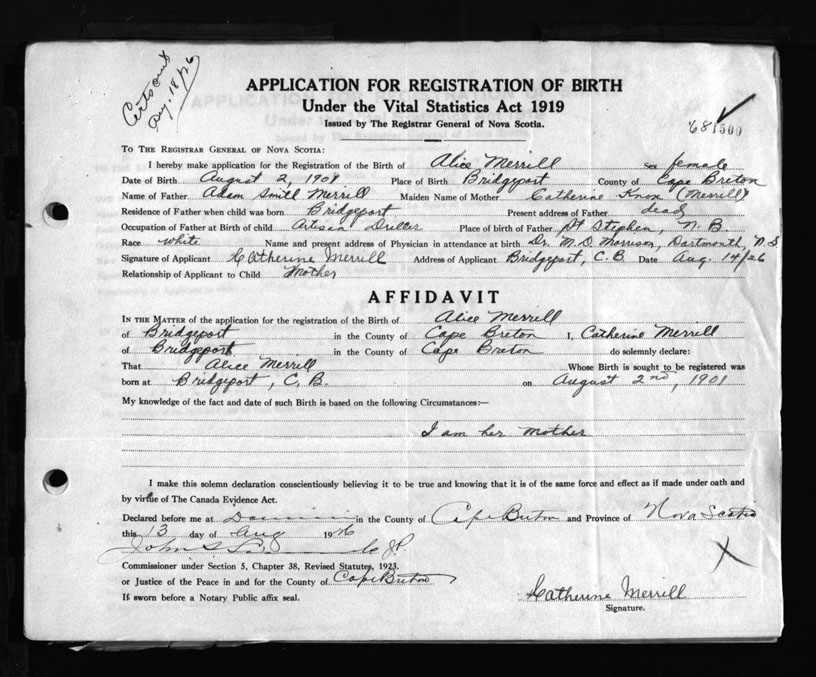 Certs sent
Aug. 18/26
APPLICATION FOR REGISTRATION OF BIRTH
Under the Vital Statistics Act 1919
Issued by The Registrar General of Nova Scotia.
681500
TO THE REGISTRAR GENERAL OF NOVA SCOTIA:
I hereby make application for the Registration of the Birth of Alice Merrill Sex female
Date of Birth August 2, 1901 Place of Birth Bridgeport County of Cape Breton
Name of Father Adam Smith Merrill Maiden Name of Mother Catherine Knox (Merrill)
Residence of Father when child was born Bridgeport Present address of Father dead
Occupation of Father at Birth of child Artisan Driller Place of birth of Father St Stephen, N. B.
Race white Name and present address of Physician in attendance at birth Dr. M. D. Morrison, Dartmouth, N S
Signature of Applicant Catherine Merrill Address of Applicant Bridgeport, C. B. Date Aug. 14/26
Relationship of Applicant to Child Mother
AFFIDAVIT
IN THE MATTER of the application for the registration of the Birth of Alice Merrill
of Bridgeport in the County of Cape Breton I, Catherine Merrill
of Bridgeport in the County of Cape Breton do solemnly declare:
That Alice Merrill Whose Birth is sought to be registered was
born at Bridgeport, C. B. on August 2nd, 1901
My knowledge of the fact and date of such Birth is based on the following Circumstances:—
I am her mother
I make this solemn declaration conscientiously believing it to be true and knowing that it is of the same force and effect as if made under oath and
by virtue of The Canada Evidence Act.
Declared before me at Dominion in the County of Cape Breton and Province of Nova Scotia
this 13 day of Aug 1926
John J.P.
Commissioner under Section 5, Chapter 38, Revised Statutes, 1923.
or Justice of the Peace in and for the County of Cape Breton
If sworn before a Notary Public affix seal.
Catherine Merrill
Signature.